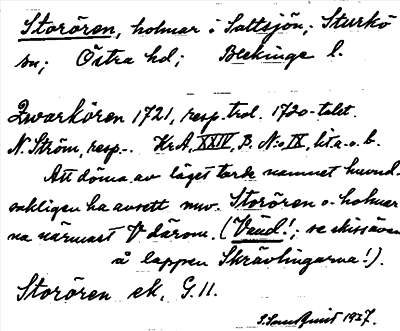 Storören, holmar i Saltsjön, Sturkö
sn; Östra hd; Blekinge l.
Qwarkören 1721, resp. trol. 1720-talet.
N. Ström, resp.-. KrA, XXIV, B. N:o IX, lit a. o. b.
Att döma av läget torde namnet huvud-
sakligen ha avsett nuv. Storören o. holmar
na närmast V därom. (Vänd!; se skissen
å lappen Skrävlingarna!).
Storören ek. G. 11.
1937.